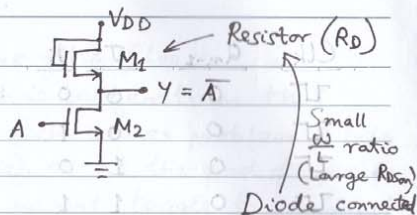 VDD
Resistor (RD)
M1
Y = A̅
A
M2
Small
W/L ratio
(Large RDSon)
Diode connected